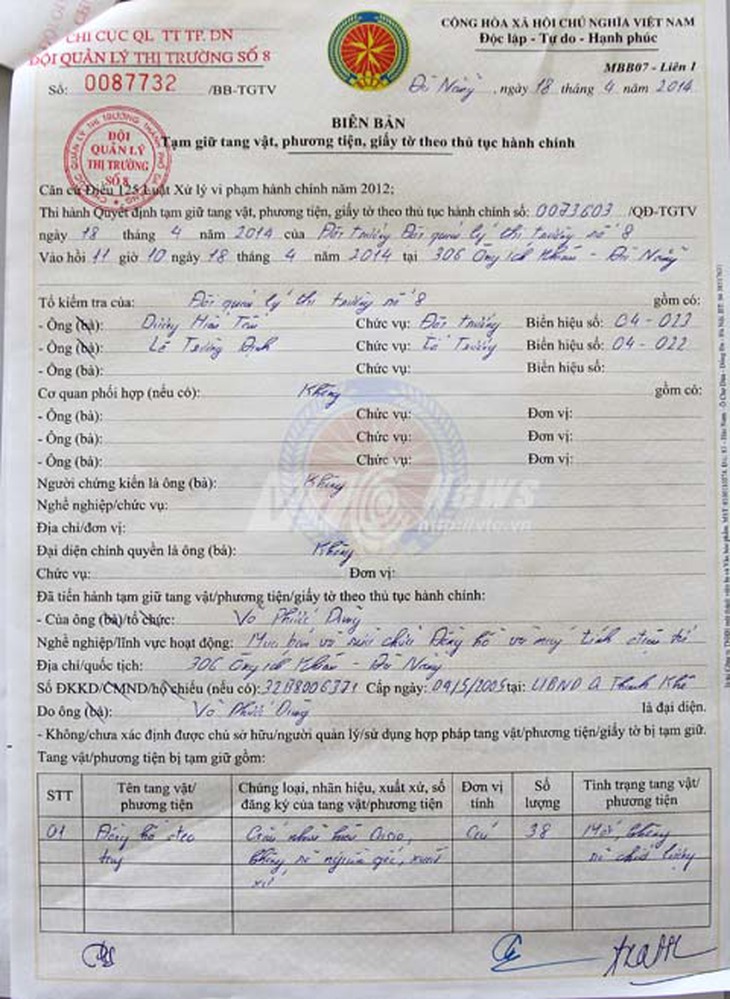 CHI CỤC QL TT TP. DN
ĐỘI QUẢN LÝ THỊ TRƯỜNG SỐ 8
Số: 0087732 /BB-TGTV
CỘNG HÒA XÃ HỘI CHỦ NGHĨA VIỆT NAM
Độc lập - Tự do - Hạnh phúc
MBB07 - Liên 1
Đà Nẵng, ngày 18 tháng 4 năm 2014
BIÊN BẢN
Tạm giữ tang vật, phương tiện, giấy tờ theo thủ tục hành chính
ĐỘI
QUẢN LÝ
THỊ TRƯỜNG
SỐ 8
Căn cứ Điều 125 Luật Xử lý vi phạm hành chính năm 2012;
Thi hành Quyết định tạm giữ tang vật, phương tiện, giấy tờ theo thủ tục hành chính số: 0073603 /QĐ-TGTV
ngày 18 tháng 4 năm 2014 của Đội trưởng Đội quản lý thị trường số 8
Vào hồi 11 giờ 10 ngày 18 tháng 4 năm 2014 tại 306 Ông Ích Khiêm - Đà Nẵng
Tổ kiểm tra của: Đội quản lý thị trường số 8 gồm có:
- Ông (bà): Chức vụ: Đội trưởng Biển hiệu số: 04 - 023
- Ông (bà): Lê Trường Định Chức vụ: Tổ Trưởng Biển hiệu số: 04 - 022
- Ông (bà): Chức vụ: Biển hiệu số:
Cơ quan phối hợp (nếu có): Không gồm có:
- Ông (bà): Chức vụ: Đơn vị:
- Ông (bà): Chức vụ: Đơn vị:
- Ông (bà): Chức vụ: Đơn vị:
Người chứng kiến là ông (bà): Không
Nghề nghiệp/chức vụ:
Địa chỉ/đơn vị:
Đại diện chính quyền là ông (bà): Không
Chức vụ: Đơn vị:
Đã tiến hành tạm giữ tang vật/phương tiện/giấy tờ theo thủ tục hành chính:
- Của ông (bà)/tổ chức: Võ Phước Dũng
Nghề nghiệp/lĩnh vực hoạt động: Mua bán và sửa chữa Đồng hồ và máy tính điện tử
Địa chỉ/quốc tịch: 306 Ông Ích Khiêm - Đà Nẵng
Số ĐKKD/CMND/hộ chiếu (nếu có): 32B8006371 Cấp ngày: 09/5/2005 tại: UBND Q Thanh Khê
Do ông (bà): Võ Phước Dũng là đại diện.
- Không/chưa xác định được chủ sở hữu/người quản lý/sử dụng hợp pháp tang vật/phương tiện/giấy tờ bị tạm giữ.
Tang vật/phương tiện bị tạm giữ gồm:
STT Tên tang vật/ phương tiện Chủng loại, nhãn hiệu, xuất xứ, số đăng ký của tang vật/phương tiện Đơn vị tính Số lượng Tình trạng tang vật/ phương tiện
01 Đồng hồ đeo tay nhãn hiệu Casio, không rõ nguồn gốc, xuất xứ Cái 38 Mới không rõ chất lượng